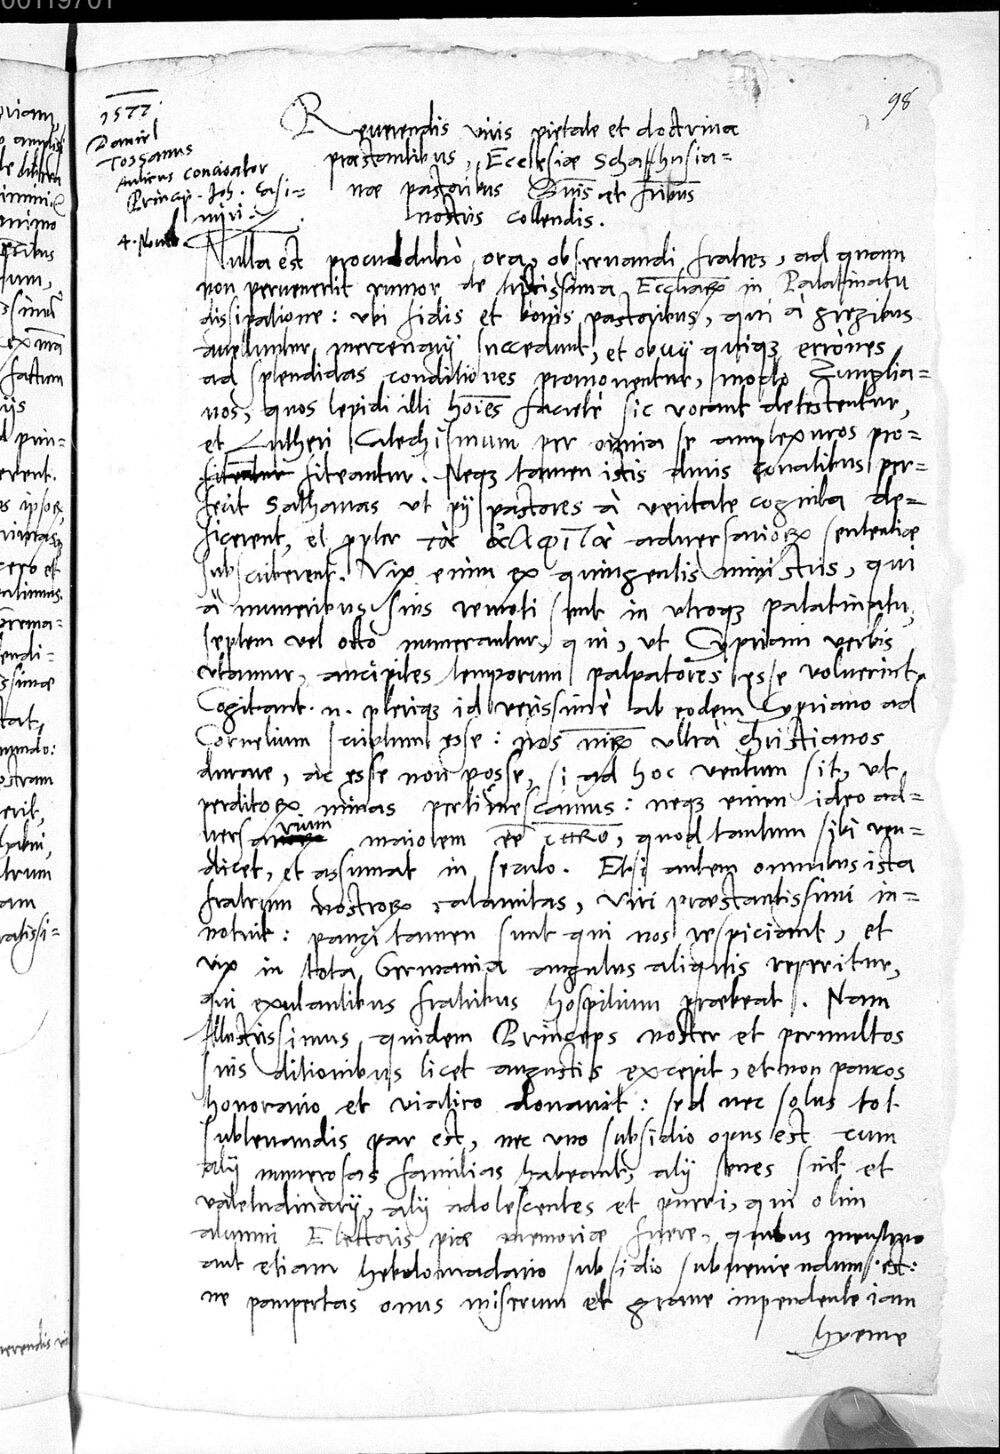 00119701
98
1577
Daniel
Tossanus
Aulicus concionator
Princip. Joh. Casi=
miri.
4. Nouēb
Reuerendis viris pietate et doctrina
præstantibus, Ecclesiæ Schaffhusia=
næ pastoribus Dn̄is et fr̄ibus
nostris collendis.
Nulla est proculdubiò ora, obseruandi fratres, ad quam
non peruenerit rumor de tristissima Eccliarꝫ in Palatinatu
dissipatione: vbi fidis et bonis pastoribus, qui à gregibus
auelluntur, mercenarij succedunt, et obuij quiqꝫ errònes
ad splendidas conditiones promouentur, modò Zunglia=
nos, quos lepidi illi hoīes facetè sic vocant detestentur,
et Lutheri Catechismum per omnia se amplexuros pro=
fiteantur fiteantur. Neqꝫ tamen istis duris conatibus per=
fecit Sathanas vt pij pastores à veritate cognita de=
ficerent, et ꝓpter τὰ ἄλφιτα adversariorꝫ sententiæ
subscriberent. Vix enim ex quingentis ministris, qui
à muneribus suis remoti sunt in vtroqꝫ palatinatu,
septem vel octo numerantur, qui, vt Cypriani verbis
vtamur, ancipites temporum palpatores esse voluerint.
Cogitant .n. pleriqꝫ id verissimè ab eodem Cypriano ad
Cornelium scriptum esse: nos ultrà christianos
durare, ac esse non posse, si ad hoc ventum sit, vt
perditorꝫ minas pertimescamus: neqꝫ enim ideo ad=
versarium maiorem eē c̄ħro, quod tantum sibi ven=
dicet, et assumat in seculo. Etsi autem omnibus ista
fratrum nostrorꝫ calamitas, viri præstantissimi in=
notuit: pauci tamen sunt qui nos respiciant, et
vix in tota Germania angulus aliquis reperitur,
qui exulantibus fratribus hospitium præbeat. Nam
Illustrissimus quidem Princeps noster et permultos
suis ditionibus licet angustis excepit, et non paucos
honorario et viatico donauit: sed nec solus tot
subleuandis par est, nec vno subsidio opus est cum
alij numerosas familias habeant, alij senes sint et
valetudinarij, alij adolescentes et pueri, qui olim
alumni Electoris piæ memoriæ fuere, quibus menstruo
aut etiam hebdomadario subsidio subueniendum est:
ne paupertas onus miserum et graue inpendente iam
hyeme